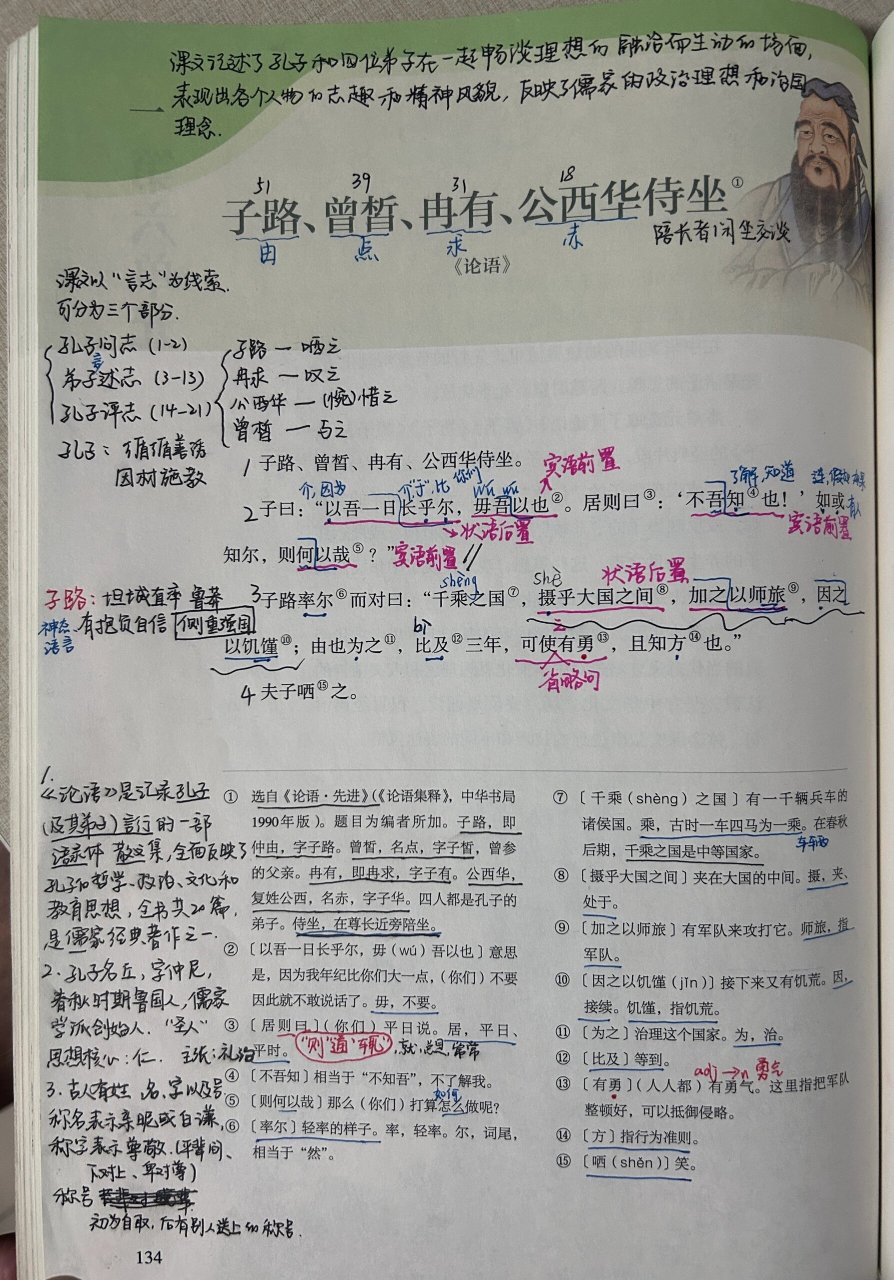 课文记述了孔子和四位弟子在一起畅谈理想的融洽而生动的场面,
表现出各个人物的志趣和精神风貌,反映了儒家的政治理想和治国
理念.
一
51 39 31 18
子路、曾皙、冉有、公西华侍坐①
由 点 求 赤 陪长者闲坐交谈
《论语》
课文以“言志”为线索.
可分为三个部分.
孔子问志(1-2)
弟子述志(3-13)
言
孔子评志(14-21)
子路—哂之
冉求—叹之
公西华—(惋)惜之
曾皙—与之
孔子:循循善诱
因材施教
1 子路、曾皙、冉有、公西华侍坐。
宾语前置
介,因为 介“于”,比 你们 wú wú 了解,知道 连,假如 有人
2 子曰:“以吾一日长乎尔,毋吾以也②。居则曰③:‘不吾知④也!’如或
状语后置 宾语前置
知尔,则何以哉⑤?” 宾语前置
shèng shè 状语后置
3 子路率尔⑥而对曰:“千乘之国⑦,摄乎大国之间⑧,加之以师旅⑨,因之
bǐ 之
以饥馑⑩;由也为之⑪,比及⑫三年,可使有勇⑬,且知方⑭也。”
省略句
4 夫子哂⑮之。
子路:坦诚直率 鲁莽
有抱负自信 侧重强国
神态
语言
1.
《论语》是记录孔子
(及其弟子)言行的一部
语录体 散文集,全面反映了
孔子的哲学、政治、文化和
教育思想,全书共20篇,
是儒家经典著作之一.
2.孔子名丘,字仲尼,
春秋时期鲁国人,儒家
学派创始人.“圣人”
思想核心:仁. 主张:礼治
3.古人有姓、名、字以及号
称名表示亲昵或自谦,
称字表示尊敬.(平辈间、
下对上、卑对尊)
称号
初为自取,后有别人送上的称号.
① 选自《论语·先进》(《论语集释》,中华书局
1990年版)。题目为编者所加。子路,即
仲由,字子路。曾皙,名点,字子皙,曾参
的父亲。冉有,即冉求,字子有。公西华,
复姓公西,名赤,字子华。四人都是孔子的
弟子。侍坐,在尊长近旁陪坐。
② 〔以吾一日长乎尔,毋(wú)吾以也〕意思
是,因为我年纪比你们大一点,(你们)不要
因此就不敢说话了。毋,不要。
③ 〔居则曰〕(你们)平日说。居,平日、
平时。 “则”通“辄”,就,总是,常常
④ 〔不吾知〕相当于“不知吾”,不了解我。
如何
⑤ 〔则何以哉〕那么(你们)打算怎么做呢?
⑥ 〔率尔〕轻率的样子。率,轻率。尔,词尾,
相当于“然”。
⑦ 〔千乘(shèng)之国〕有一千辆兵车的
诸侯国。乘,古时一车四马为一乘。在春秋
后期,千乘之国是中等国家。
车辆
⑧ 〔摄乎大国之间〕夹在大国的中间。摄,夹、
处于。
⑨ 〔加之以师旅〕有军队来攻打它。师旅,指
军队。
⑩ 〔因之以饥馑(jǐn)〕接下来又有饥荒。因,
接续。饥馑,指饥荒。
⑪ 〔为之〕治理这个国家。为,治。
⑫ 〔比及〕等到。
adj→n 勇气
⑬ 〔有勇〕(人人都)有勇气。这里指把军队
整顿好,可以抵御侵略。
⑭ 〔方〕指行为准则。
⑮ 〔哂(shěn)〕笑。
134